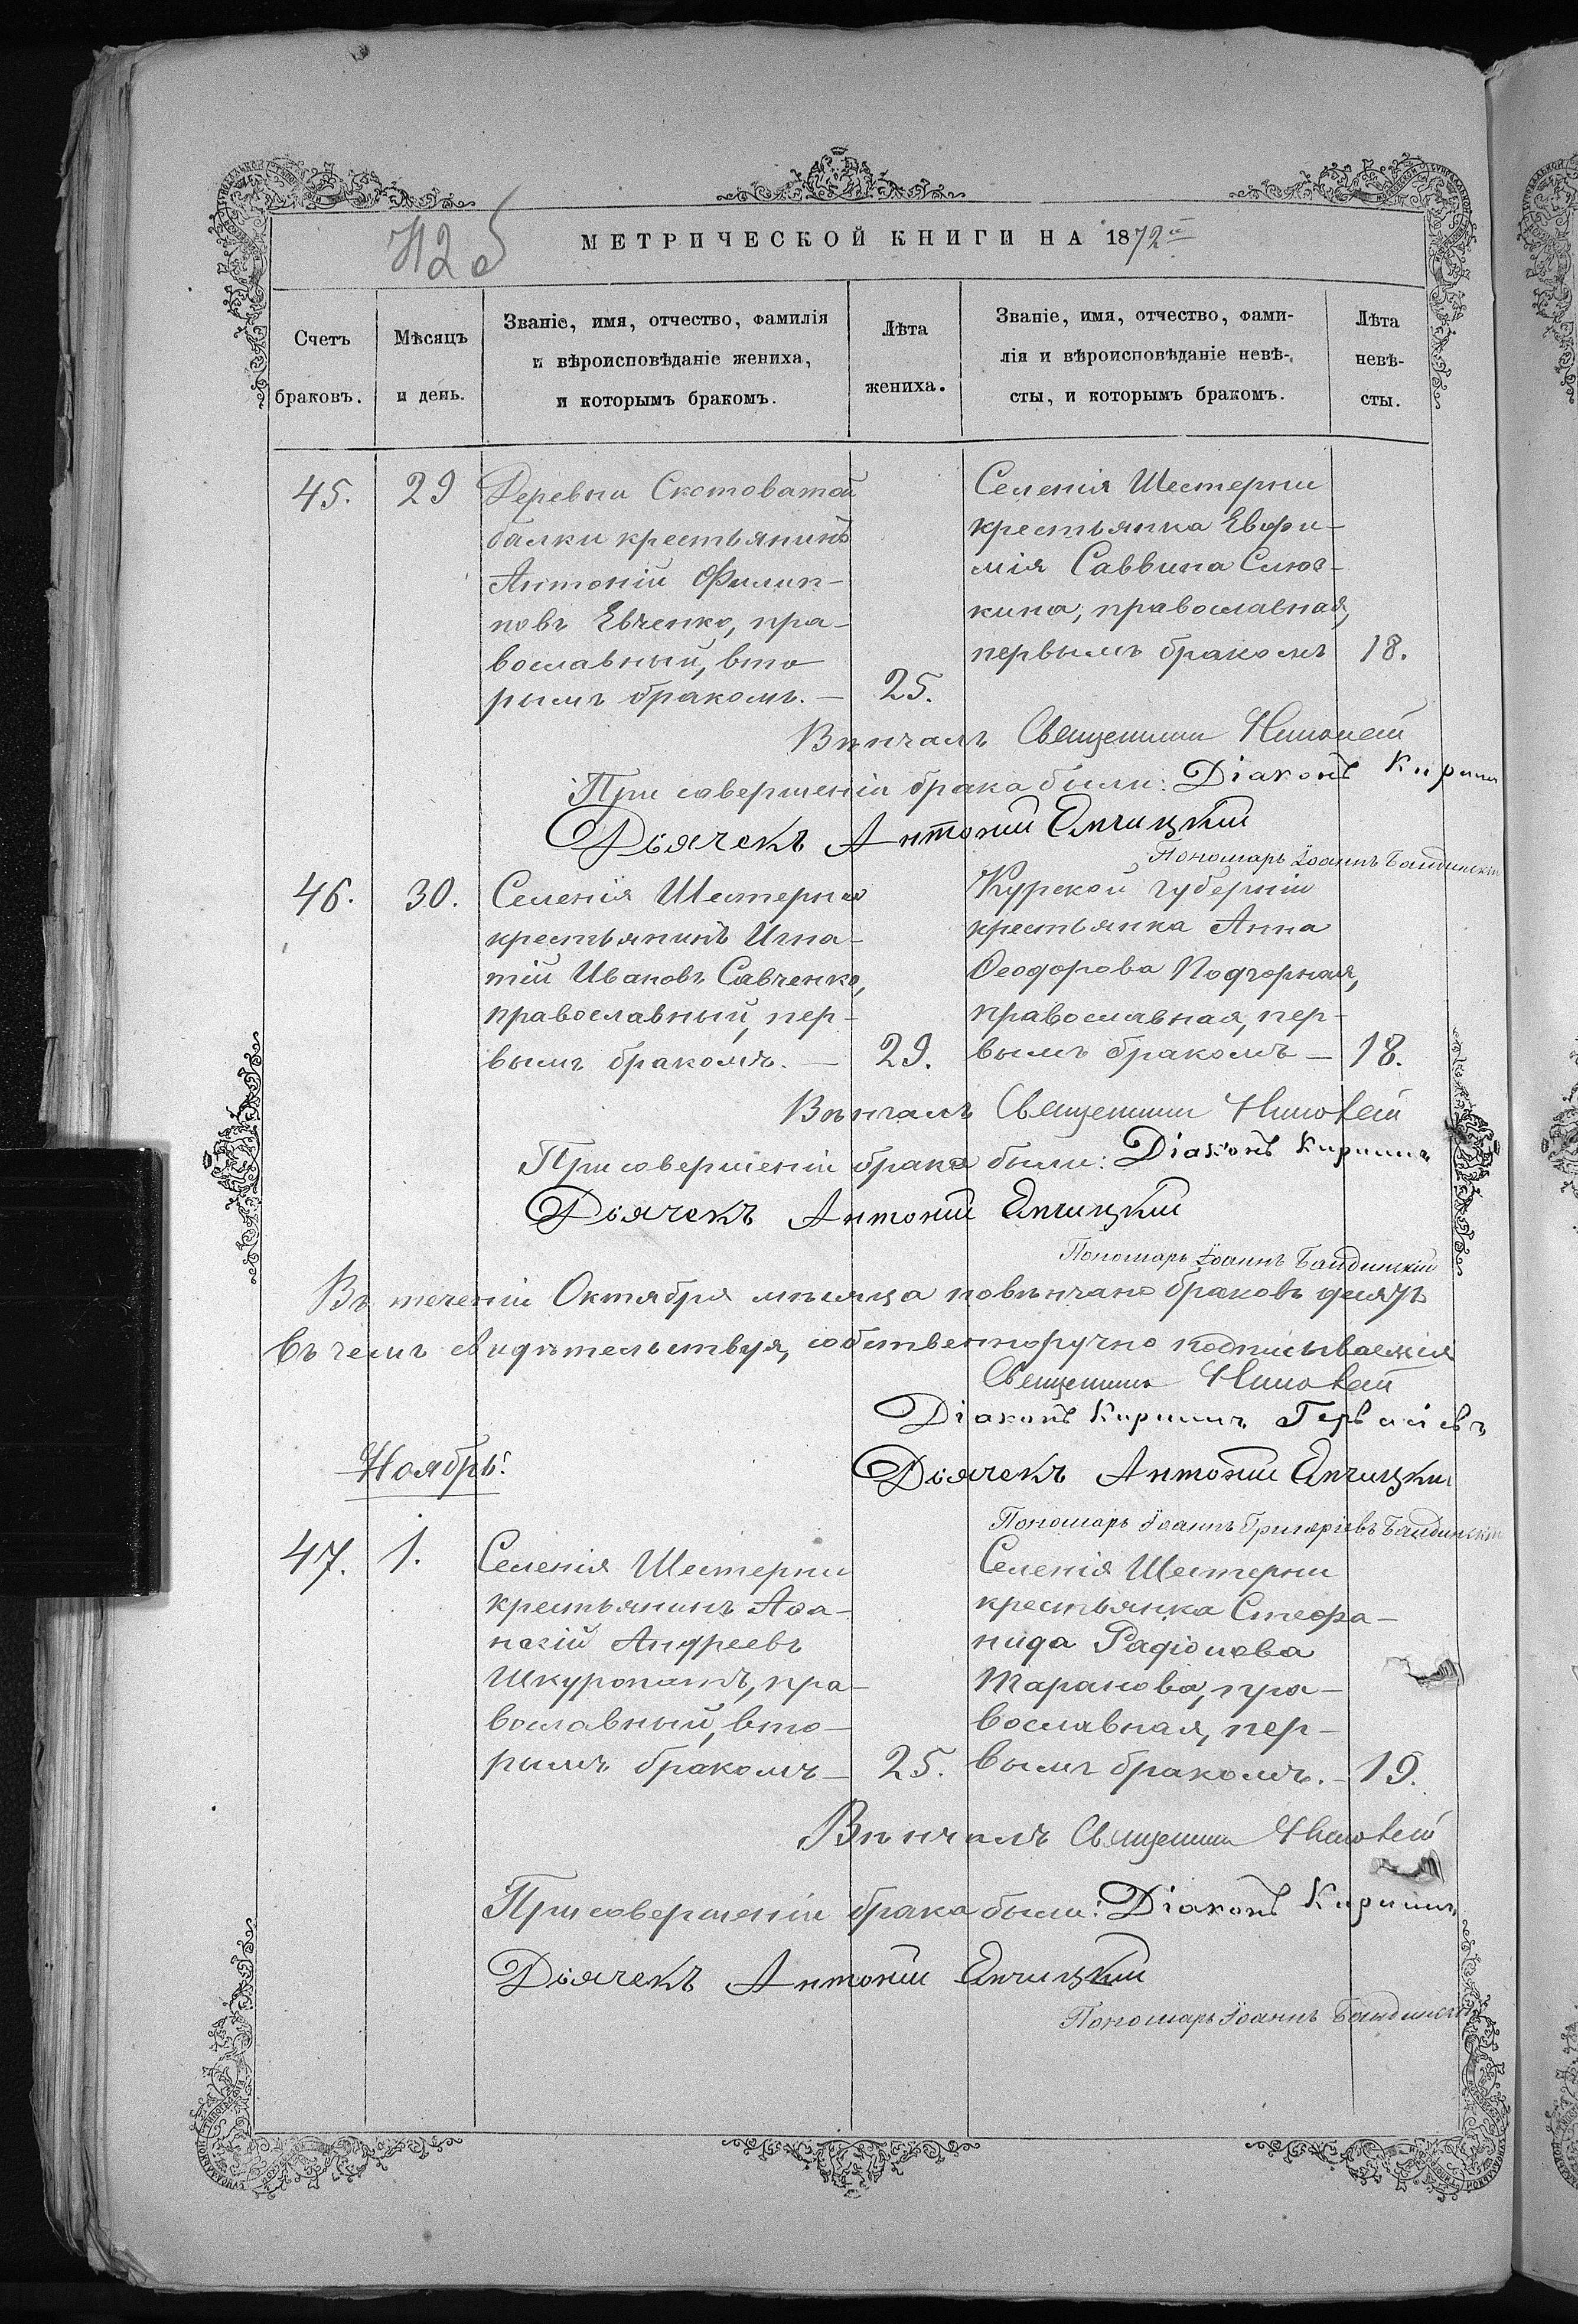 МЕТРИЧЕСКОЙ КНИГИ НА 1872й
Счетъ браковъ.
Мѣсяцъ и день.
Званіе, имя, отчество, фамилія
и вѣроисповѣданіе жениха,
и которымъ бракомъ.
Лѣта
жениха.
Званіе, имя, отчество, фами-
лія и вѣроисповѣданіе невѣ-
сты, и которымъ бракомъ.
Лѣта
невѣ-
сты.
45.
29
Деревни Скотоватой
балки крестьянинъ
Антоній Филип-
повъ Евченко, пра-
вославный, вто
рымъ бракомъ. —
25.
Селенія Шестерни
крестьянка Евфи-
мія Саввина Слюс-
кина, православная,
первымъ бракомъ
18.
Вѣнчалъ Священникъ
При совершеніи брака были: Діаконъ Кирилл
Дьячекъ Антоній
Пономарь Іоаннъ
46.
30.
Селенія Шестерни
крестьянинъ Игна-
тій Ивановъ Савченко,
православный, пер-
вымъ бракомъ. —
29.
Курской губерніи
крестьянка Анна
Ѳеодорова Подгорная,
православная, пер-
вымъ бракомъ —
18.
Вѣнчалъ Священникъ
При совершеніи брака были: Діаконъ Кириллъ
Дьячекъ Антоній
Пономарь Іоаннъ
Въ теченіи Октября мѣсяца повѣнчано браковъ
въ чемъ свидѣтельствуя, собственноручно подписываемся
Священникъ
Діаконъ Кириллъ
Дьячекъ Антоній
Пономарь Іоаннъ Григоріевъ
Ноябрь.
47.
1.
Селенія Шестерни
крестьянинъ Аѳа-
насій Андреевъ
Шкуропатъ, пра-
вославный, вто-
рымъ бракомъ —
25.
Селенія Шестерни
крестьянка Стефа-
нида Радіонова
Таранова, пра-
вославная, пер-
вымъ бракомъ. —
19.
Вѣнчалъ Священникъ
При совершеніи брака были: Діаконъ Кириллъ
Дьячекъ Антоній
Пономарь Іоаннъ